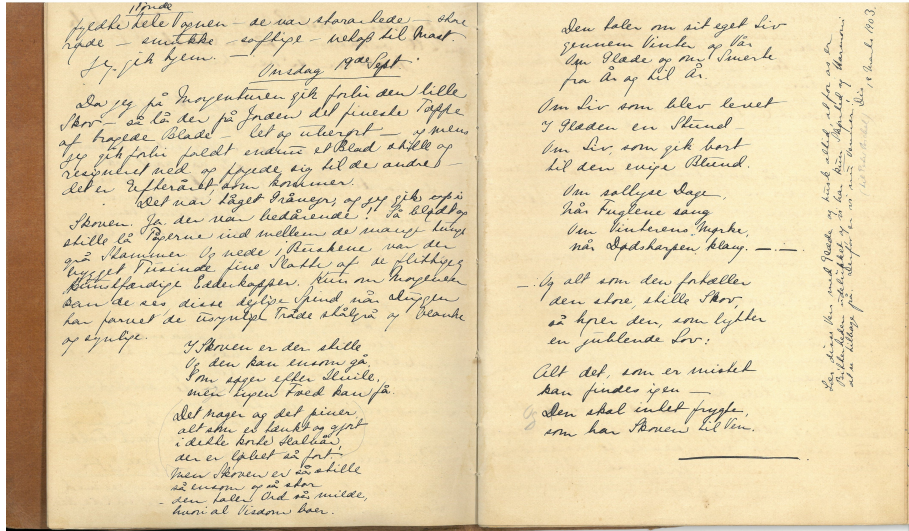 fyldte hele Vognen – de var storartede – store
røde – smukke – saftige – netop til Mast.
Jeg gik hjem. –
Onsdag 19de Sept.
Da jeg på Morgenturen gik forbi den lille
Skov – så lå der på Jorden det fineste Tæppe
af bragede Blade – let og uberørt – og mens
jeg gik forbi faldt endnu et Blad stille og
resigneret ned og føjede sig til de andre –
det er Efteråret, som kommer.
Det var tåget Gråvejr, og jeg gik op i
Skoven. Ja, der var bedårende! Så blødt og
stille lå Tågerne ind mellem de mange tunge
grå Stammer. Og nede i Buskene var der
bygget Tusinde fine Slotte af de flittige
kunstfærdige Edderkopper. Kun om Morgenen
kan de ses, disse dejlige Spind når Duggen
har farvet de usynlige Tråde stålgrå og blanke
og synlige.
I Skoven er der stille
Og den kan ensom gå,
Som søger efter Hvile,
men ingen Fred kan få.
Det nager og det piner
alt som er tænkt og gjort
i dette korte Halvår,
der er løbet så fort.
Men Skoven er så stille
så ensom og så stor
den taler Ord så milde,
hvori al Visdom boer.
Den taler om sit eget Liv
gennem Vinter og Vår
Om Glæde og om Smerte
fra År og til År.
Om Liv som blev levet
I Glæden en Stund –
Om Liv, som gik bort
til den evige Blund.
Om sollyse Dage,
når Fuglene sang
Om Vinterens Mørke,
når Dødsharpen klang. — . —
– Og alt som den fortæller
den store, stille Skov,
så hører den, som lytter
en jublende Lov:
Alt det, som er mistet
kan findes igen –
Den skal intet frygte,
som har Skoven til Ven.